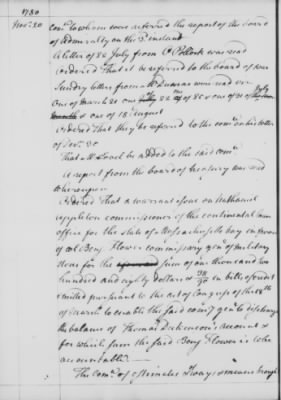 1780
Nov. 20
comee to whom were referred the report of the board
of Admiralty on the 3d instant
A letter of 22 July from O Pollock was read
Ordered That it be referred to the board of war
Sundry letters from Mr Dumas were read viz
One of March 21 one of 22 one of 25 & one of 21 of July
& one of 18 August
Ordered That they be referred to the comee on his letter
of Decr. 30
That Mr Lovel be added to the said comee
A report from the board of treasury was read
whereupon
Ordered That a warrant issue on Nathaniel
Appleton commissioner of the continental loan
office for the state of Massachusetts bay in favour
of col Benj Flower commissary genl of military
stores for the sum of one thousand two
hundred and eighty dollars & 38/90 in bills of credit
emitted pursuant to the act of Congress of the 18th
of March to enable the said comy gen to discharge
the balance of Thomas Dickenson's account &
for which sum the said Benj Flower is to be
accountable.
The comee of estimates & ways & means brought